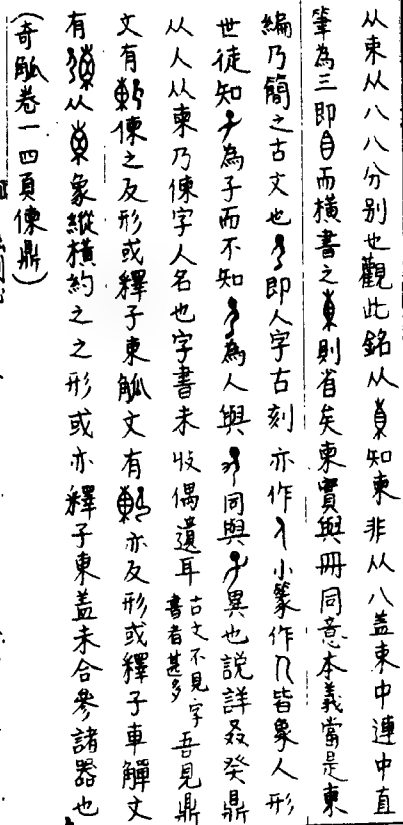 从柬从八八分別也觀此銘从知柬非从八盖柬中連中直
筆為三即目而橫書之則省矣柬實與冊同意本義當是柬
編乃簡之古文也即人字古刻亦作小篆作皆象人形
世徒知為子而不知為人與同與異也說詳癸鼎
从人从柬乃倲字人名也字書未收偶遺耳古文不見字書者甚多吾見鼎
文有倲之反形或釋子東觚文有亦反形或釋子車觶文
有从象縱橫約之之形或亦釋子東盖未合參諸器也
(奇觚卷一四頁倲鼎)